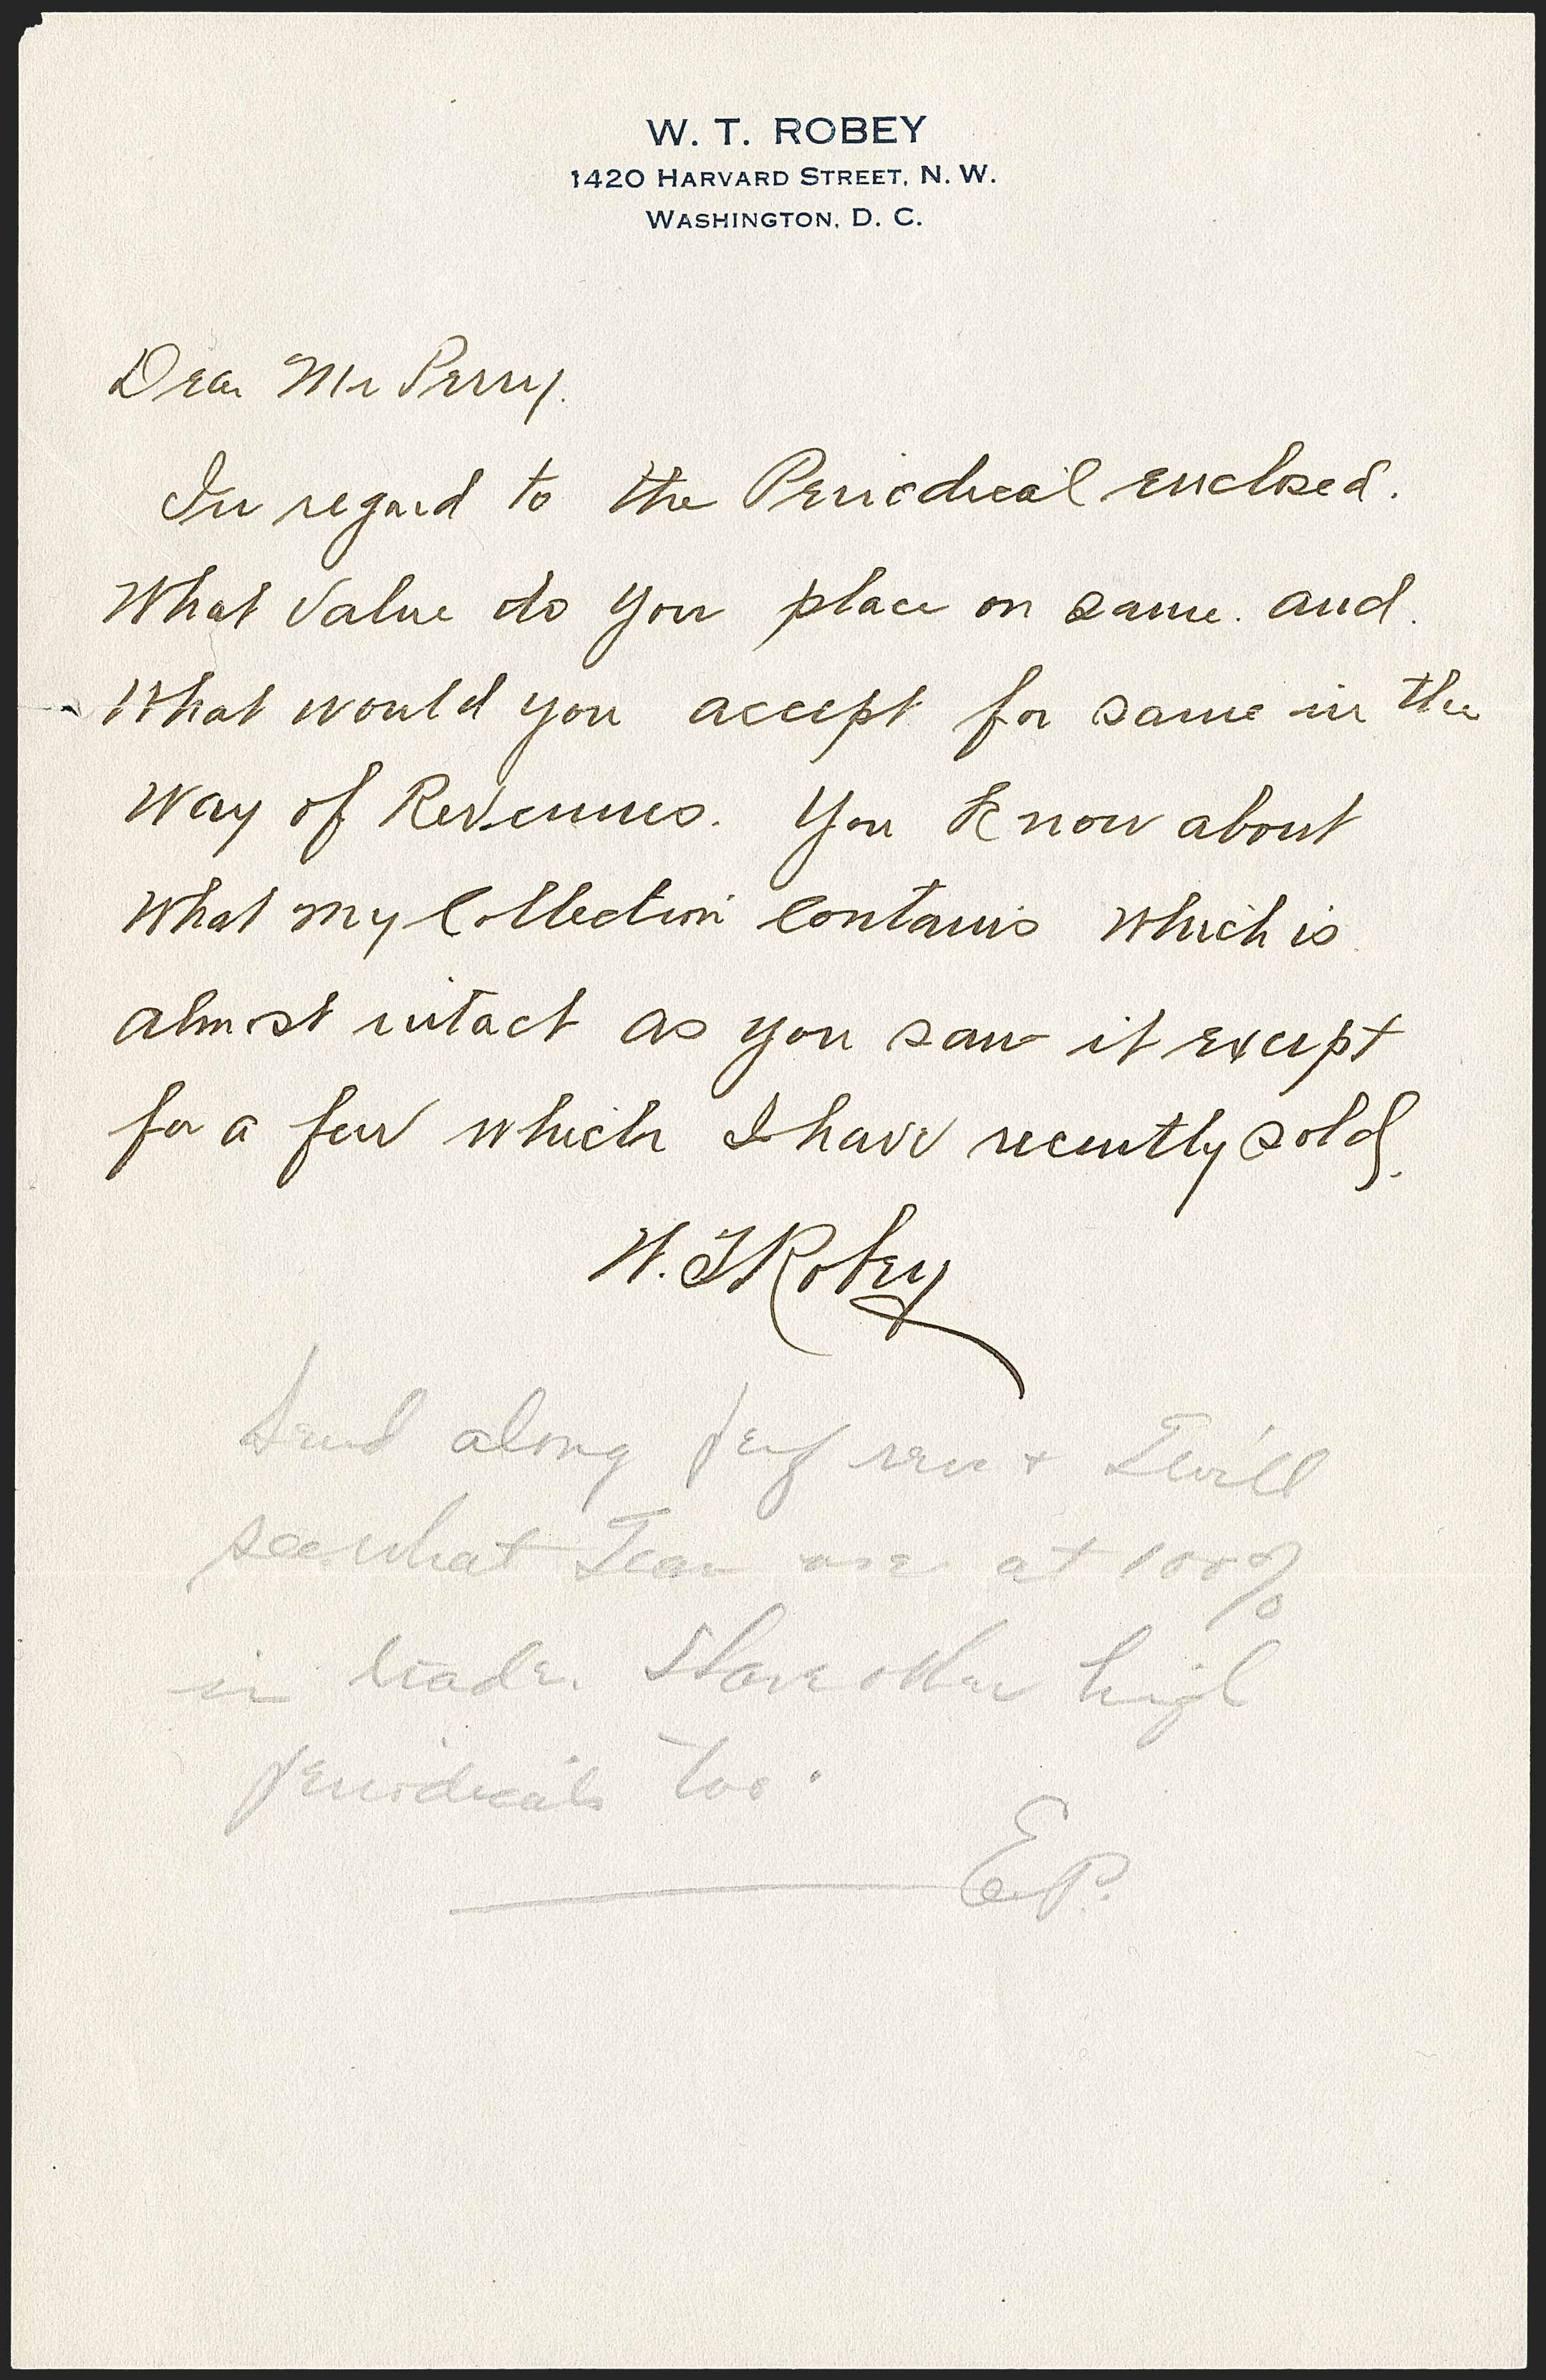 W. T. ROBEY
1420 HARVARD STREET, N. W.
WASHINGTON, D. C.
Dear Mr Perry.
In regard to the Periodical enclosed.
What Value do you place on same. and.
What would you accept for same in the
Way of Revenues. You Know about
What my Collection Contains which is
almost intact as you saw it except
for a few which I have recently sold.
W. T Robey
Send along perf rev + I will
see what I can use at 100%
in trade. I have other high
periodicals too.
E.P.